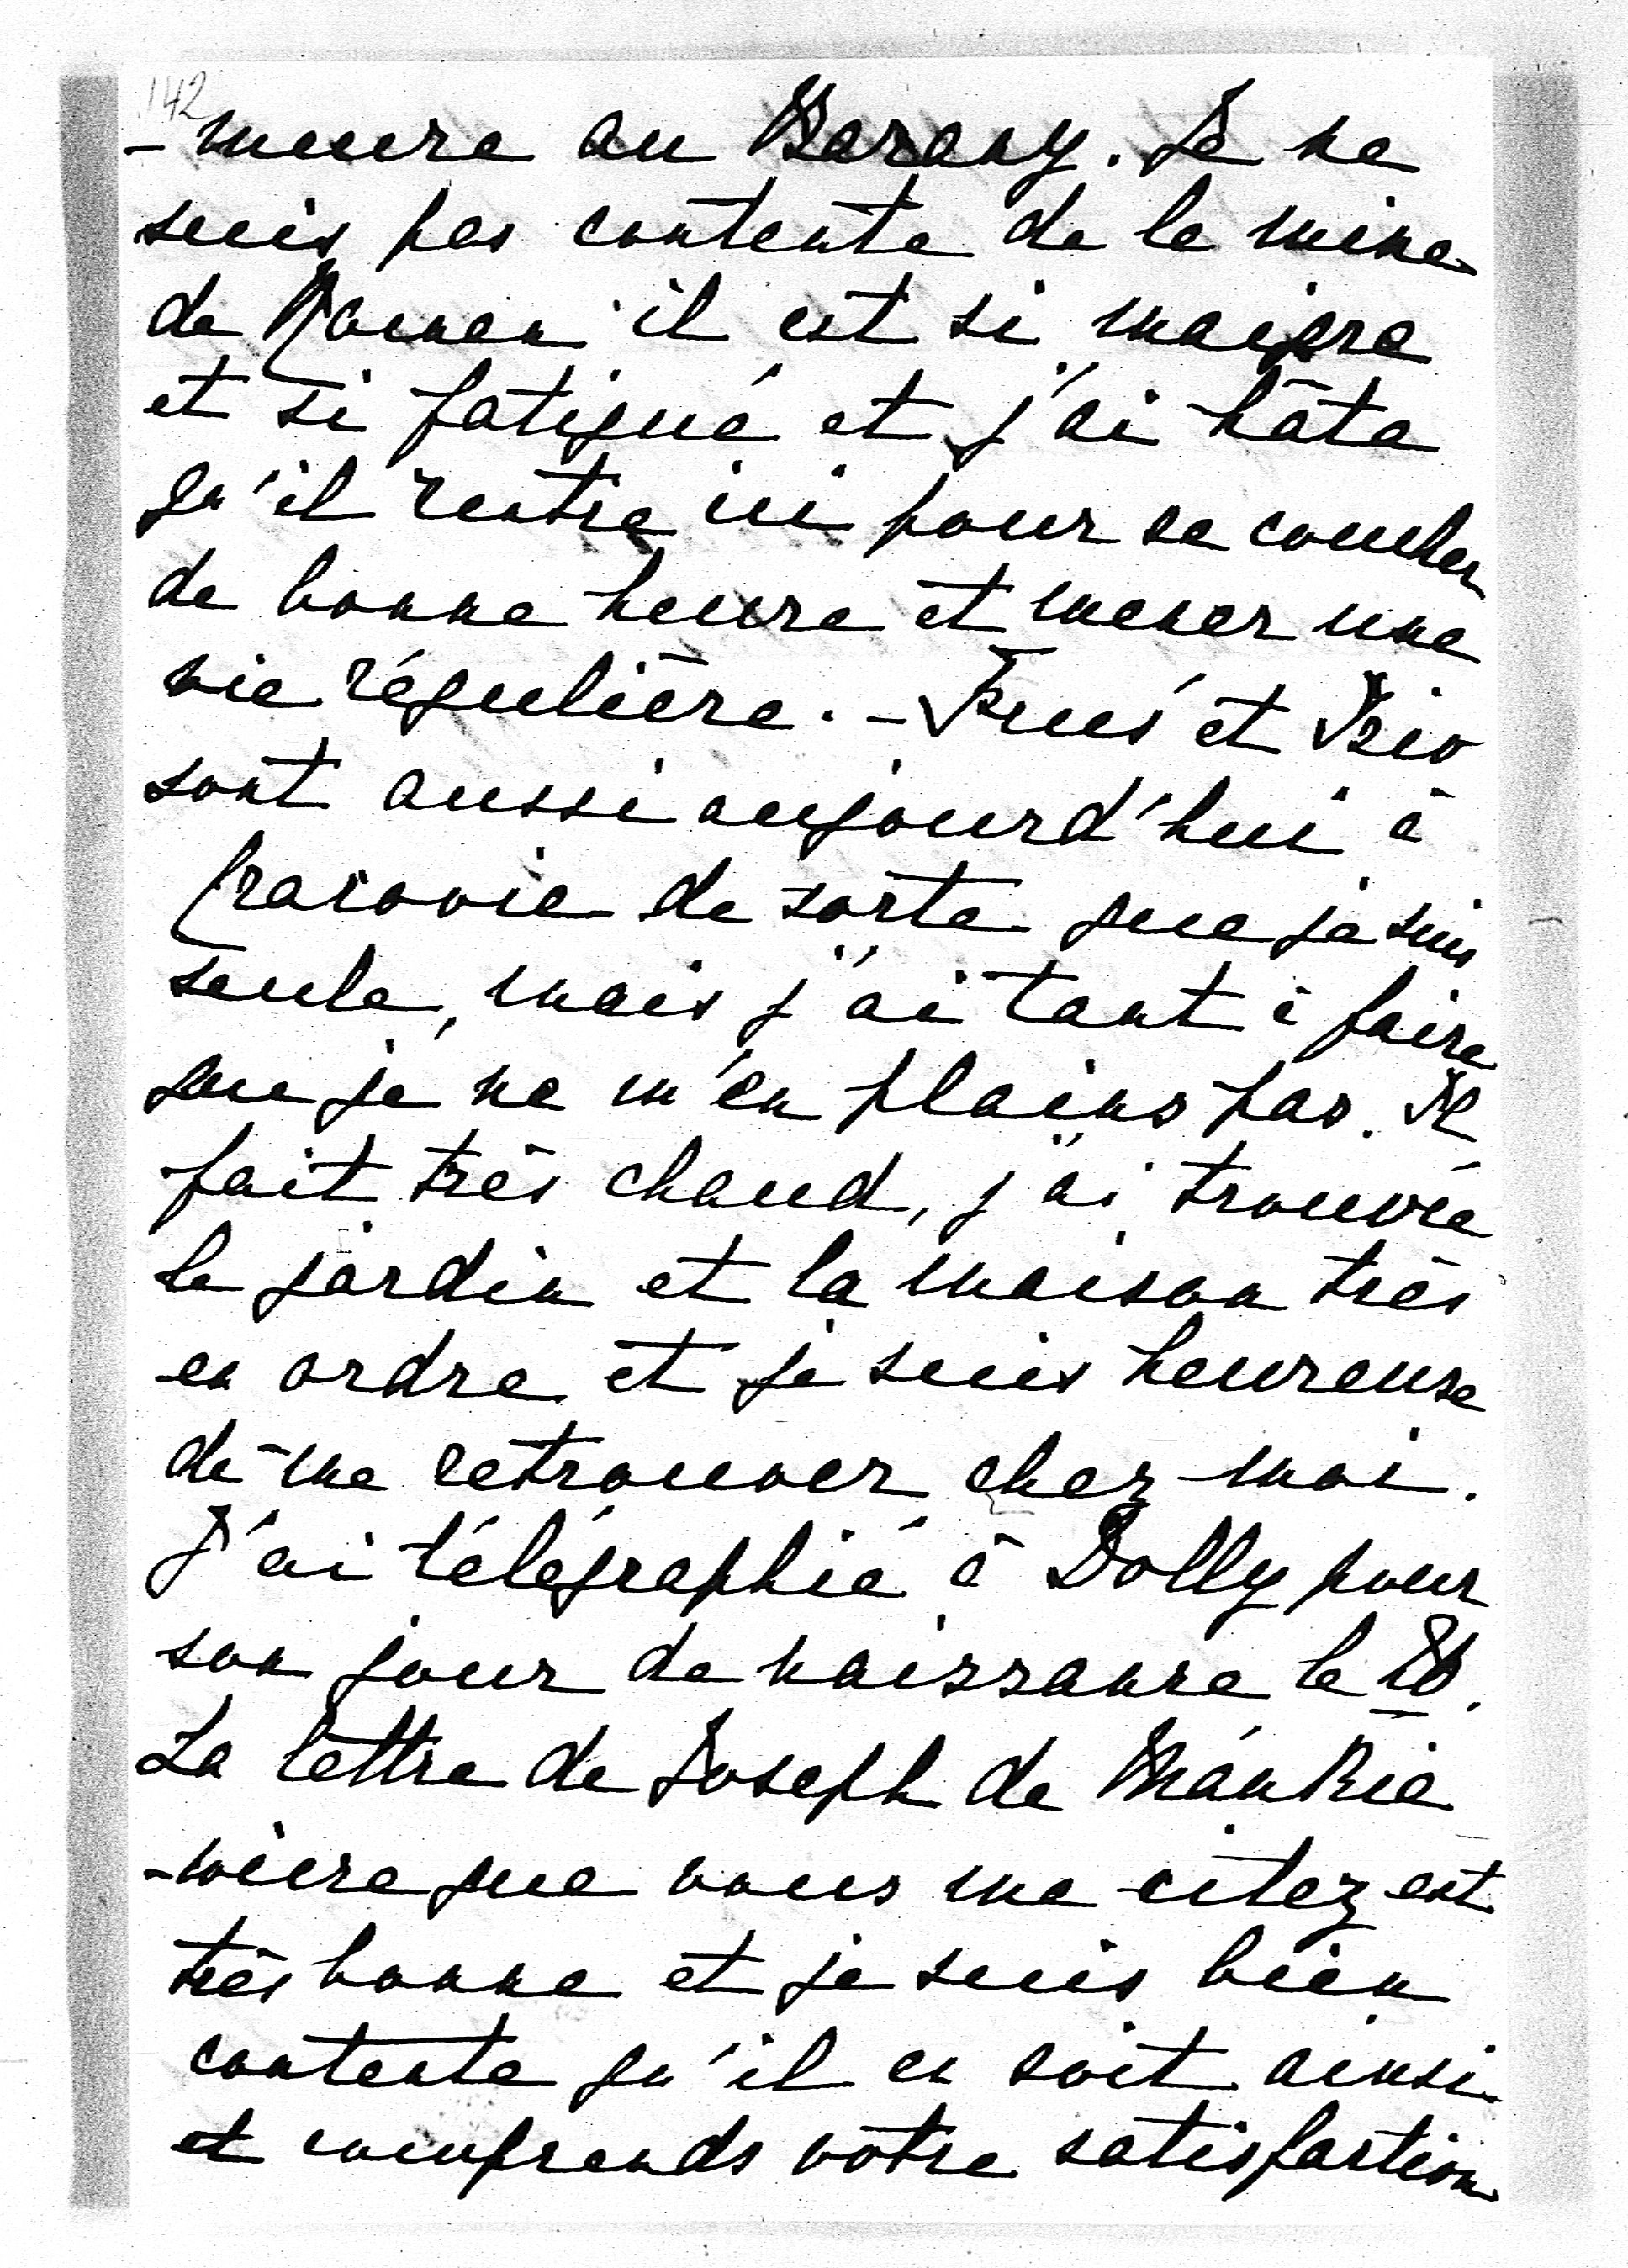 142
-meure au Barany. Je ne
suis pas contente de la mine
de Roman il est si maigre
et si fatigué et j'ai hâte
qu'il rentre ici pour se coucher
de bonne heure et mener une
vie régulière. - et
sont aussi aujourd'hui à
Cracovie de sorte que je suis
seule, mais j'ai tant à faire
que je ne m'en plains pas. Il
fait très chaud, j'ai trouvé
le jardin et la maison très
en ordre et je suis heureuse
de me retrouver chez-moi.
J'ai télégraphié à Dolly pour
son jour de naissance le
La lettre de Joseph de
que vous me citez est
très bonne et je suis bien
contente qu'il en soit ainsi
et comprends votre satisfaction